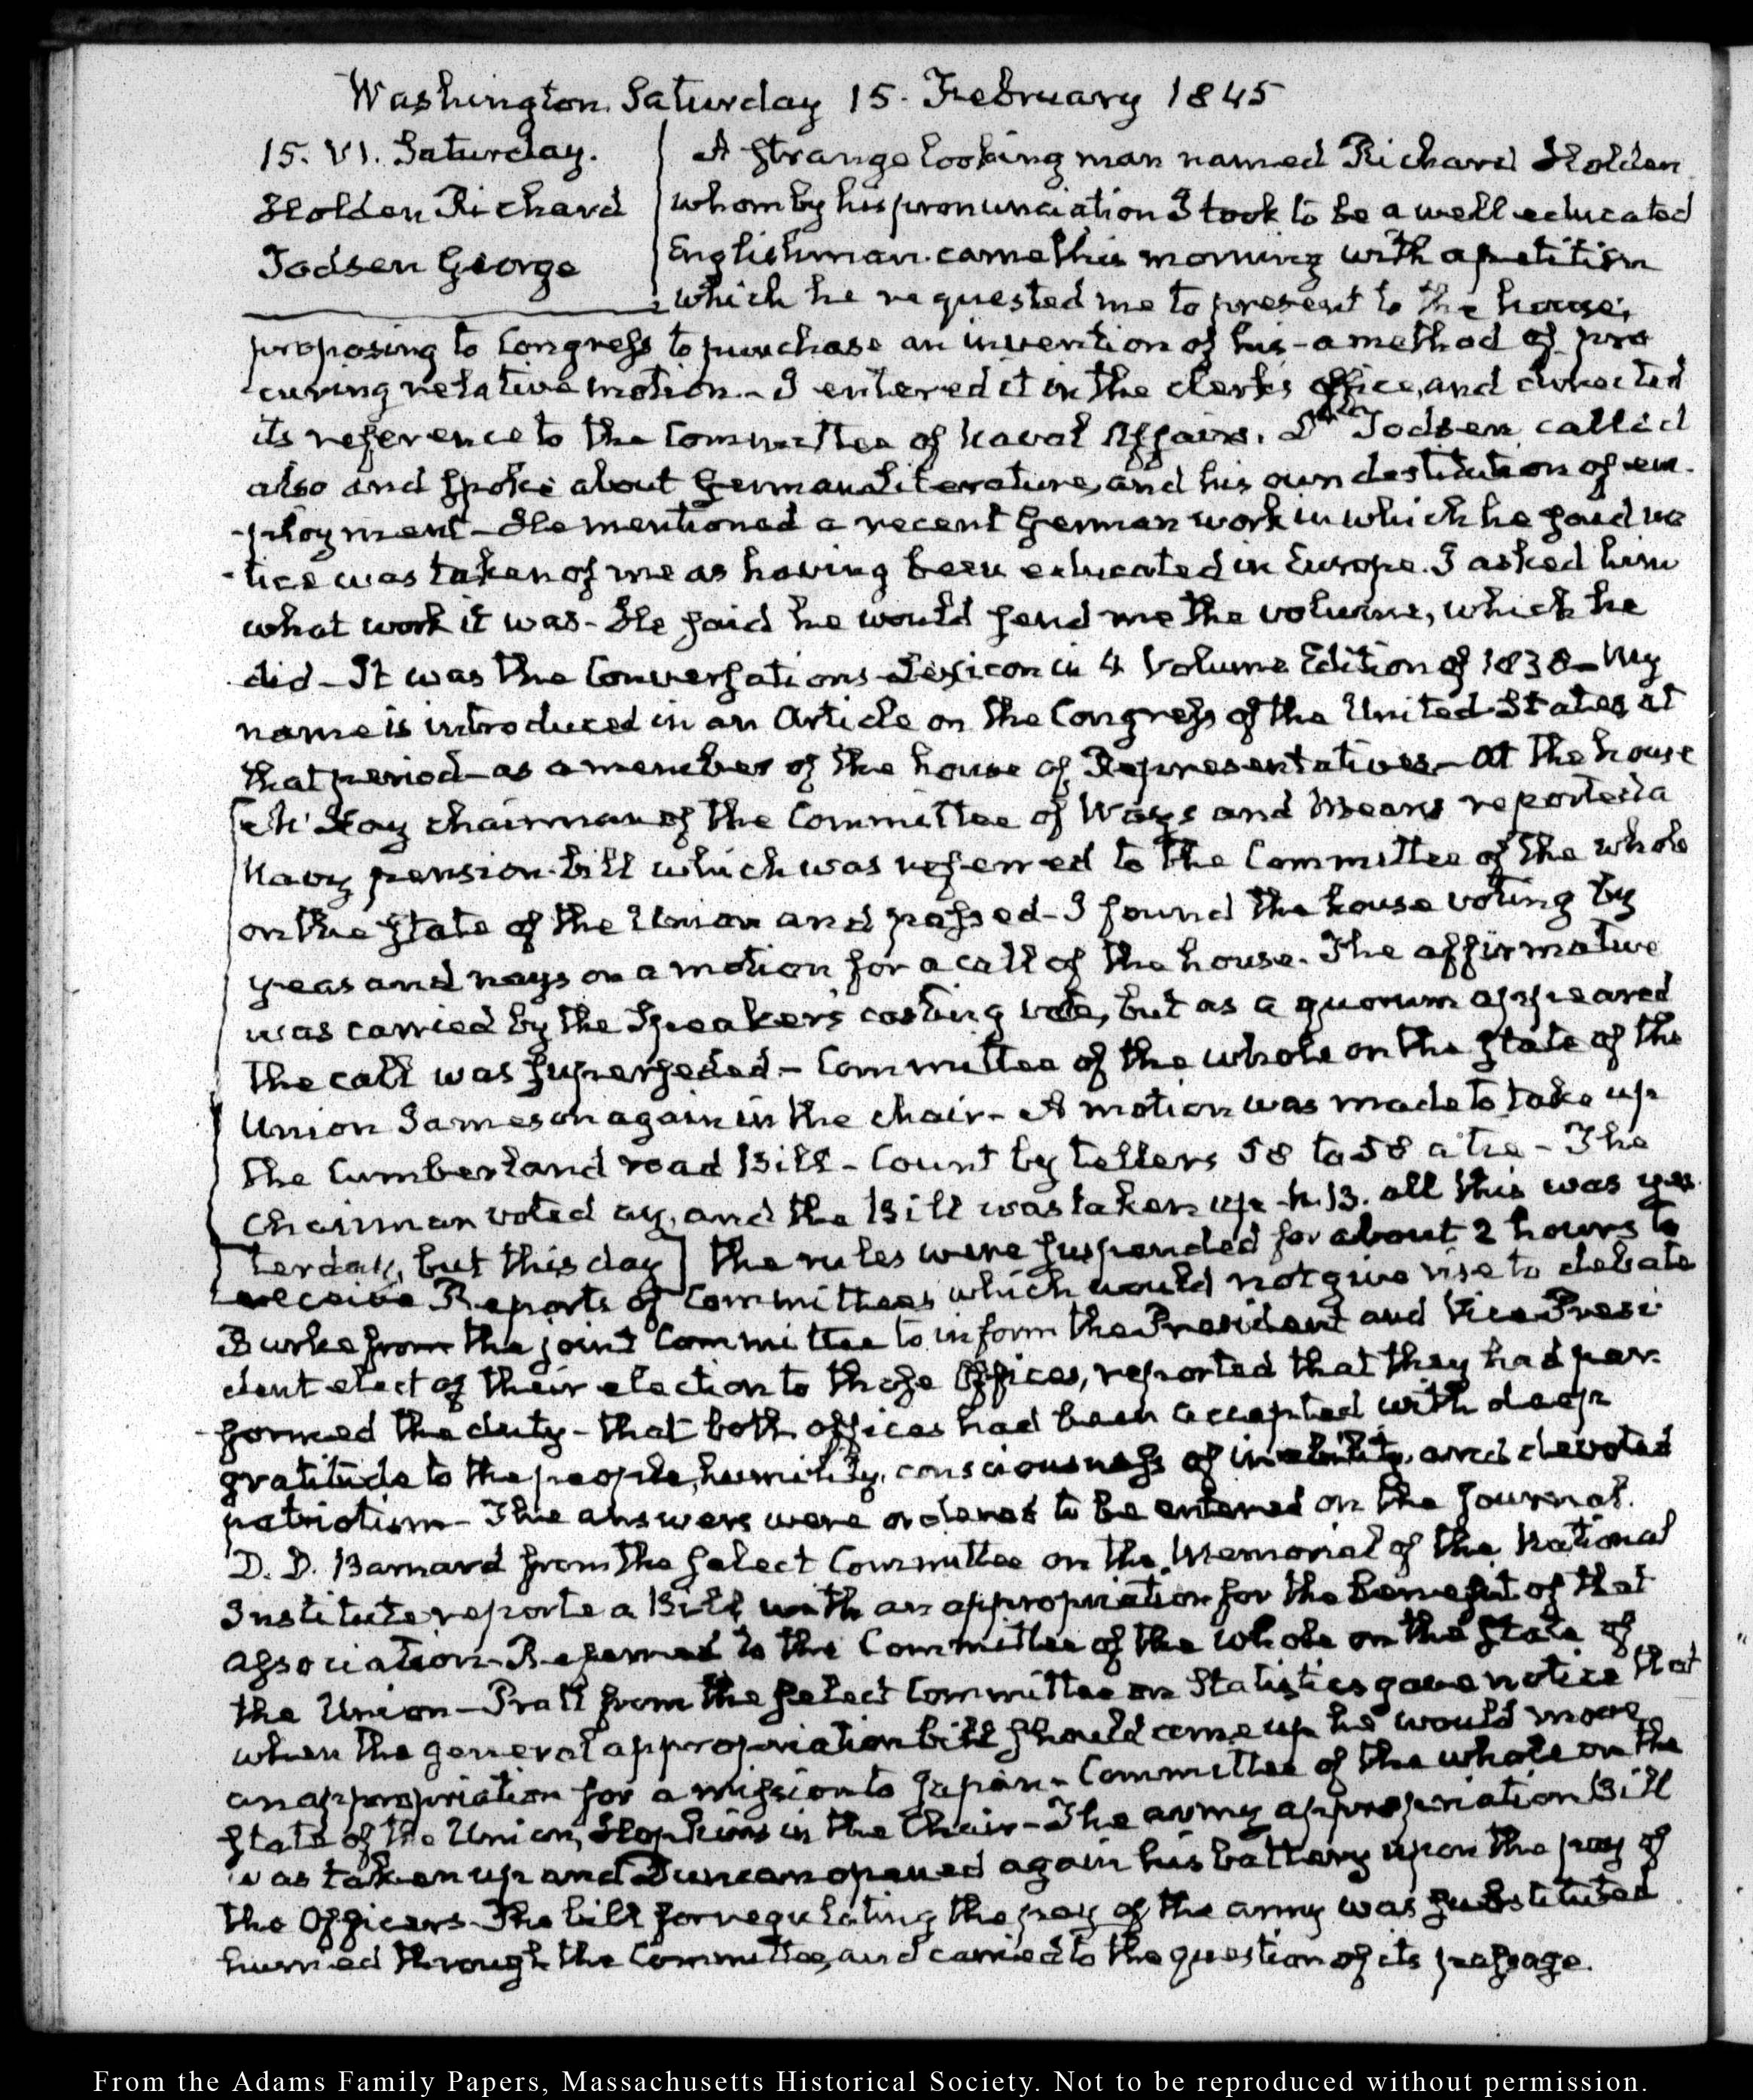 Washington Saturday 15. February 1845
15. VI. Saturday.
Holden Richard
Todsen George
A strange looking man named Richard Holden
whom by his pronunciation I took to be a well educated
Englishman. came this morning with a petition
which he requested me to present to the house,
proposing to Congress to purchase an invention of his - a method of pro
curing relative motion - I entered it in the clerk's office, and directed
its reference to the Committee of Naval Affairs. Dr. Todsen called
also and spoke about German Literature, and his own destitution of em-
-ployment - He mentioned a recent German work in which he said no
-tice was taken of me as having been educated in Europe. I asked him
what work it was - He said he would send me the volume, which he
did - It was the Conversations-Lexicon in 4 Volume Edition of 1838 - My
name is introduced in an Article on the Congress of the United States at
that period - as a member of the house of Representatives - At the house
[McKay chairman of the Committee of Ways and Means reported a
Navy pension bill which was referred to the Committee of the whole
on the state of the Union and passed - I found the house voting by
yeas and nays on a motion for a call of the house. The affirmative
was carried by the Speaker's casting vote, but as a quorum appeared
the call was superseded - Committee of the whole on the state of the
Union Jameson again in the chair - A motion was made to take up
the Cumberland road Bill - Count by tellers 58 to 58 a tie - The
chairman voted ay, and the Bill was taken up - N.B. all this was yes
terday, but this day] the rules were suspended for about 2 hours to
receive Reports of Committees which would not give rise to debate
Burke from the joint Committee to inform the President and Vice Presi
dent elect of their election to those Offices, reported that they had per-
-formed the duty - that both offices had been accepted with deep
gratitude to the people, humility, consciousness of inability, and devoted
patriotism - The answers were ordered to be entered on the Journal.
D. D. Barnard from the select Committee on the Memorial of the National
Institute, reporte a Bill with an appropriation for the benefit of that
association - Referred to the Committee of the whole on the state of
the Union - Pratt from the select Committee on Statistics gave notice that
when the general appropriation bill should come up he would move
an appropriation for a mission to Japan - Committee of the whole on the
state of the Union, Hopkins in the Chair - The army appropriation Bill
was taken up and Duncan opened again his battery upon the pay of
the Officers - The bill for regulating the pay of the army was substituted
hurried through the Committee, and carried to the question of its passage.
From the Adams Family Papers, Massachusetts Historical Society. Not to be reproduced without permission.